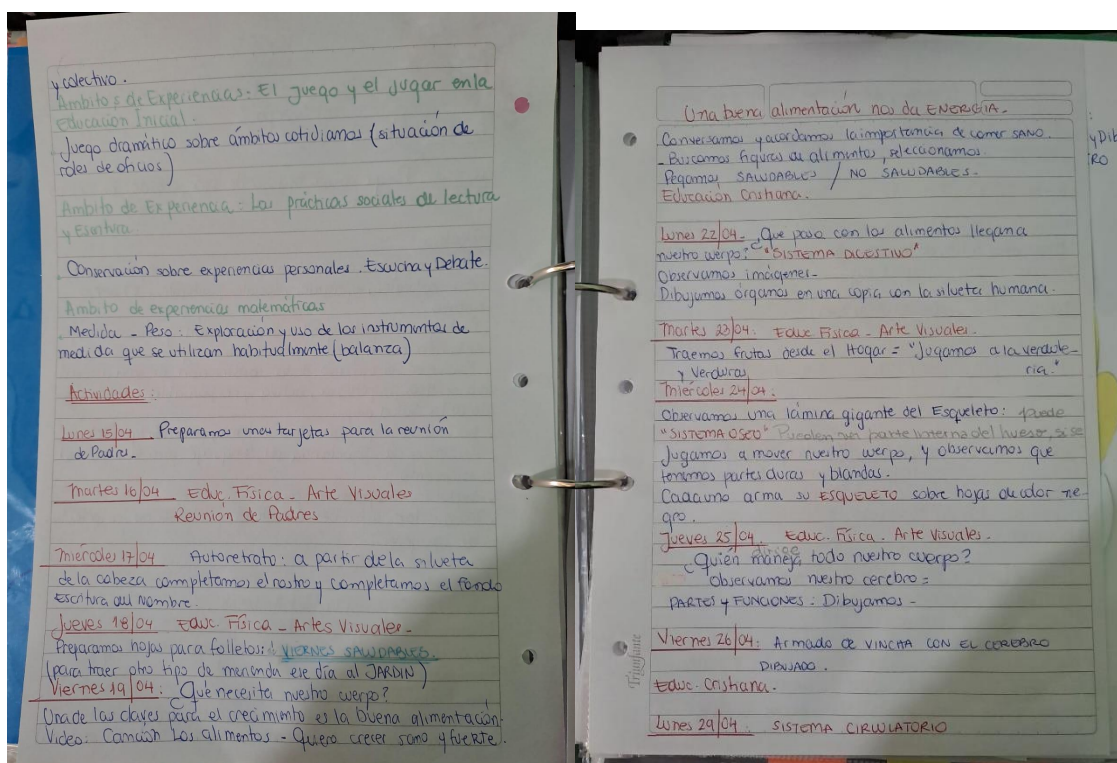 y colectivo.
Ambitos de Experiencias: El juego y el jugar en la
educación Inicial.
Juego dramático sobre ámbitos cotidianos (situación de
roles de oficios)
Ambito de Experiencia: Las prácticas sociales de lectura
y Escritura
Conservación sobre experiencias personales. Escucha y Debate.
Ambito de experiencias matemáticas
Medida - Peso: Exploración y uso de los instrumentos de
medida que se utilizan habitualmente (balanza)
Actividades:
Lunes 15/04 Preparamos unas tarjetas para la reunión
de Padres.
Martes 16/04 Educ. Física - Arte Visuales
Reunión de Padres
Miércoles 17/04 Autoretrato: a partir de la silueta
de la cabeza completamos el rostro y completamos el fondo
Escritura del Nombre.
Jueves 18/04 Educ. Física - Artes Visuales-
Preparamos hojas para folletos: VIERNES SALUDABLES.
(para traer otro tipo de merienda ese día al JARDIN)
Viernes 19/04: ¿Qué necesita nuestro cuerpo?
Una de las claves para el crecimiento es la buena alimentación.
Video: Canción Los alimentos - Quiero crecer sano y fuerte.
Una buena alimentación nos da ENERGIA.
Conversamos y acordamos la importancia de comer SANO.
- Buscamos figuras de alimentos, seleccionamos.
Pegamos SALUDABLES / NO SALUDABLES.
Educación Cristiana.
Lunes 22/04- ¿Que pasa con los alimentos llegan a
nuestro cuerpo? "SISTEMA DIGESTIVO"
Observamos imágenes-
Dibujamos órganos en una copia con la silueta humana.
Martes 23/04: Educ Física - Arte Visuales.
Traemos frutas desde el Hogar = "Jugamos a la verdule-
y Verduras ría."
Miércoles 24/04:
Observamos una lámina gigante del Esqueleto: puede
"SISTEMA OSEO" Pueden ser parte interna del hueso, si se
Jugamos a mover nuestro cuerpo, y observamos que
tenemos partes duras y blandas.
Cada uno arma su ESQUELETO sobre hojas de color ne-
gro.
Jueves 25/04. Educ. Física. Arte Visuales.
¿Quién maneja todo nuestro cuerpo?
dirige
Observamos nuestro cerebro =
PARTES y FUNCIONES: Dibujamos -
Viernes 26/04: Armado de VINCHA CON EL CEREBRO
DIBUJADO.
Educ. Cristiana.
Lunes 29/04. SISTEMA CIRCULATORIO
Triunfante
y DIB
RO